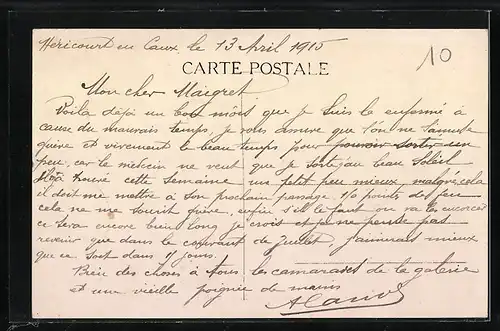 Héricourt en Caux le 13 Avril 1915
10
CARTE POSTALE
Mon cher Maigret
Voila déjà un bon mois que je suis le enfermé à
cause du mauvais temps, je vous assure que l'on ne s'amuse
guère et vivement le beau temps pour pouvoir sortir un
peu, car le médecin ne veut que je sorte qu'au beau Soleil
trouvé cette semaine un petit peu mieux, malgré cela
il doit me mettre à son prochain passage 1/0 points de feu
cela ne me sourit guère, enfin s'il le faut on va les encorcer
ce sera encore bien long je crois et je ne pense pas
revenir que dans le courant de Juillet j'aimerais mieux
que ce soit dans 8 jours.
Bien des choses à tous les camarades de la galerie
et une vieille poignée de mains